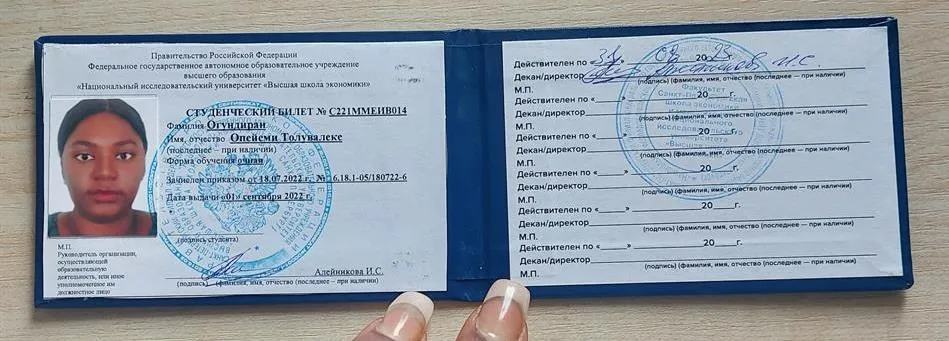 Правительство Российской Федерации
Федеральное государственное автономное образовательное учреждение
высшего образования
«Национальный исследовательский университет «Высшая школа экономики»
СТУДЕНЧЕСКИЙ БИЛЕТ № С221ММЕИВ014
Фамилия Огундиран
Имя, отчество Опейеми Толувалеке
(последнее – при наличии)
Форма обучения очная
Зачислен приказом от 18.07.2022 г. № 6.18.1-05/180722-6
Дата выдачи «01» сентября 2022 г.
(подпись студента)
М.П.
Руководитель организации,
осуществляющей
образовательную
деятельность, или иное
уполномоченное им
должностное лицо
Алейникова И.С.
(подпись) (фамилия, имя, отчество (последнее – при наличии)
Действителен по «31 08 2023
Декан/директор И.С.
М.П. (подпись) (фамилия, имя, отчество (последнее – при наличии)
Действителен по «____»____ 20____г.
Декан/директор
М.П. (подпись) (фамилия, имя, отчество (последнее – при наличии)
Действителен по «____»____ 20____г.
Декан/директор
М.П. (подпись) (фамилия, имя, отчество (последнее – при наличии)
Действителен по «____»____ 20____г.
Декан/директор
М.П. (подпись) (фамилия, имя, отчество (последнее – при наличии)
Действителен по «____»____ 20____г.
Декан/директор
М.П. (подпись) (фамилия, имя, отчество (последнее – при наличии)
Действителен по «____»____ 20____г.
Декан/директор
М.П. (подпись) (фамилия, имя, отчество (последнее – при наличии)
Факультет
школа экономики